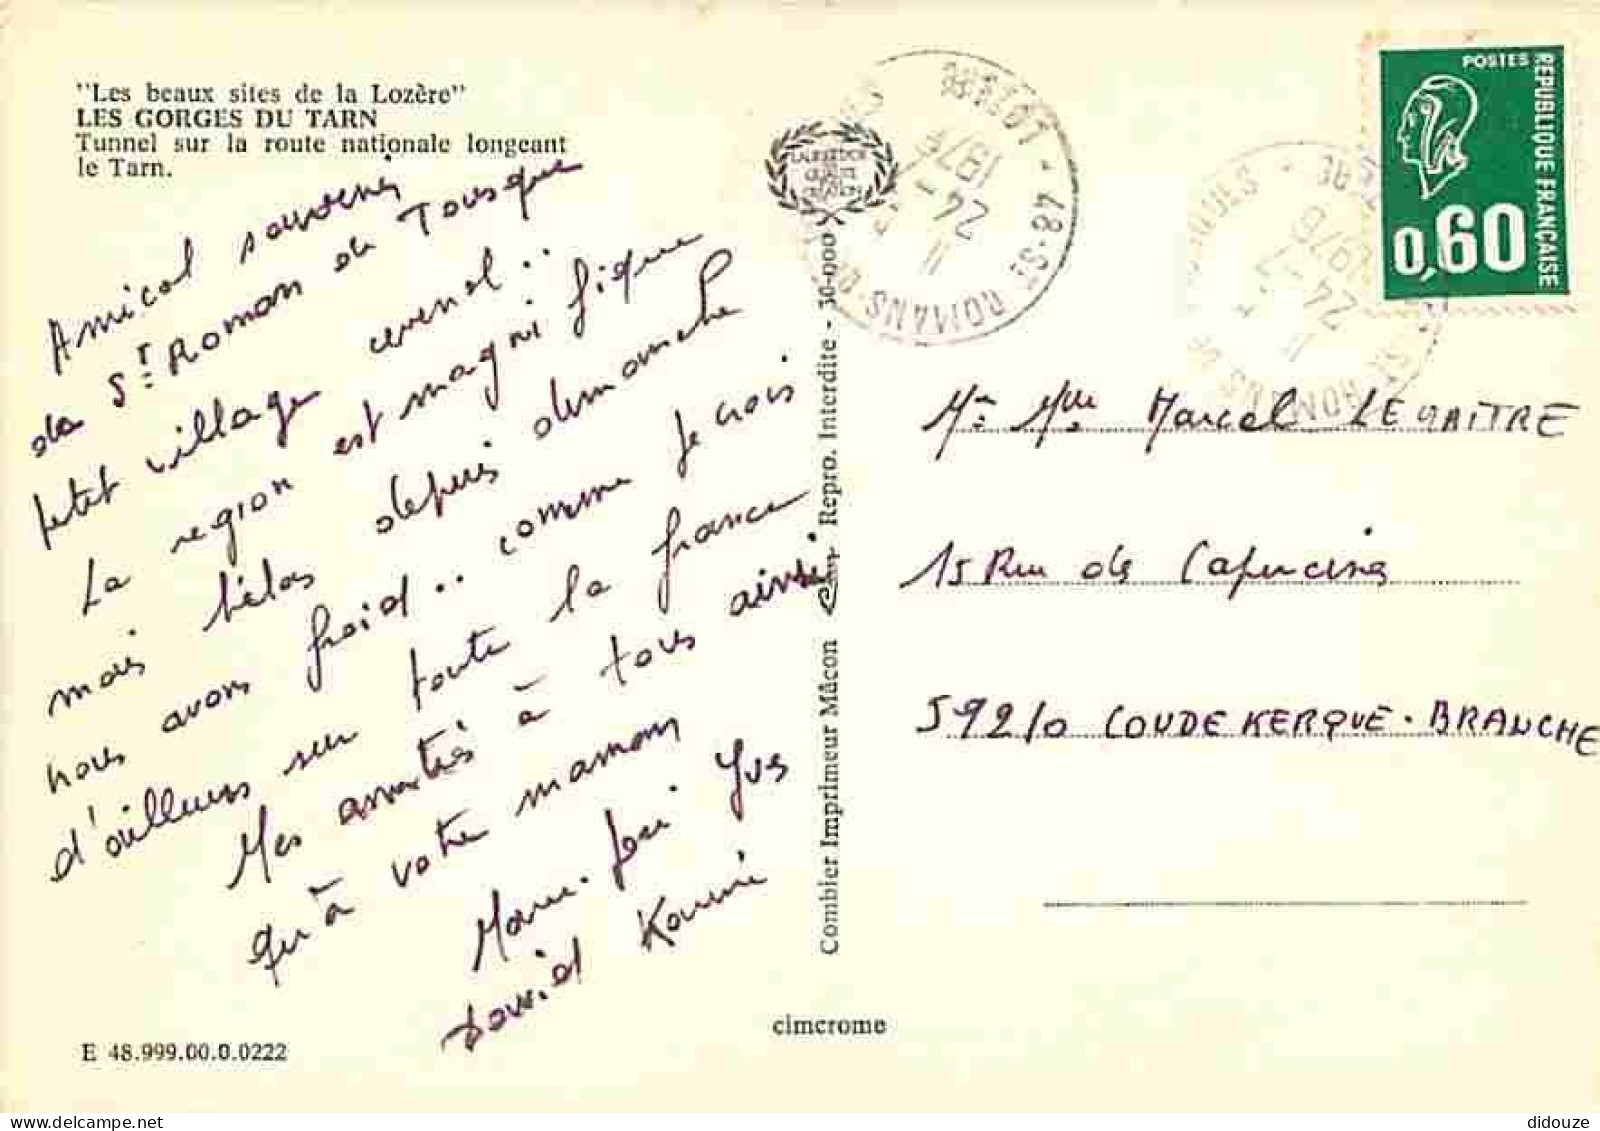 "Les beaux sites de la Lozère"
LES GORGES DU TARN
Tunnel sur la route nationale longeant
le Tarn.
Amical souvenir
de St Roman de Tousque
petit village cevenol..
La region est magnifique
mais hélas depuis dimanche
nous avons froid.. comme je crois
d'ailleurs sur toute la france
Mes amitiés à tous ainsi
qu'à votre maman
Marie-José Yves
David Karine
E 48.999.00.0.0222
cimcrome
Combier Imprimeur Mâcon Repro. Interdite - 30-000
48-St ROMANS
24-7
1978
POSTES
REPUBLIQUE FRANÇAISE
0,60
24-7
1978
Mr Mme Marcel LEMAITRE
15 Rue des Capucins
59210 COUDEKERQUE-BRANCHE
delcampe.net
didouze